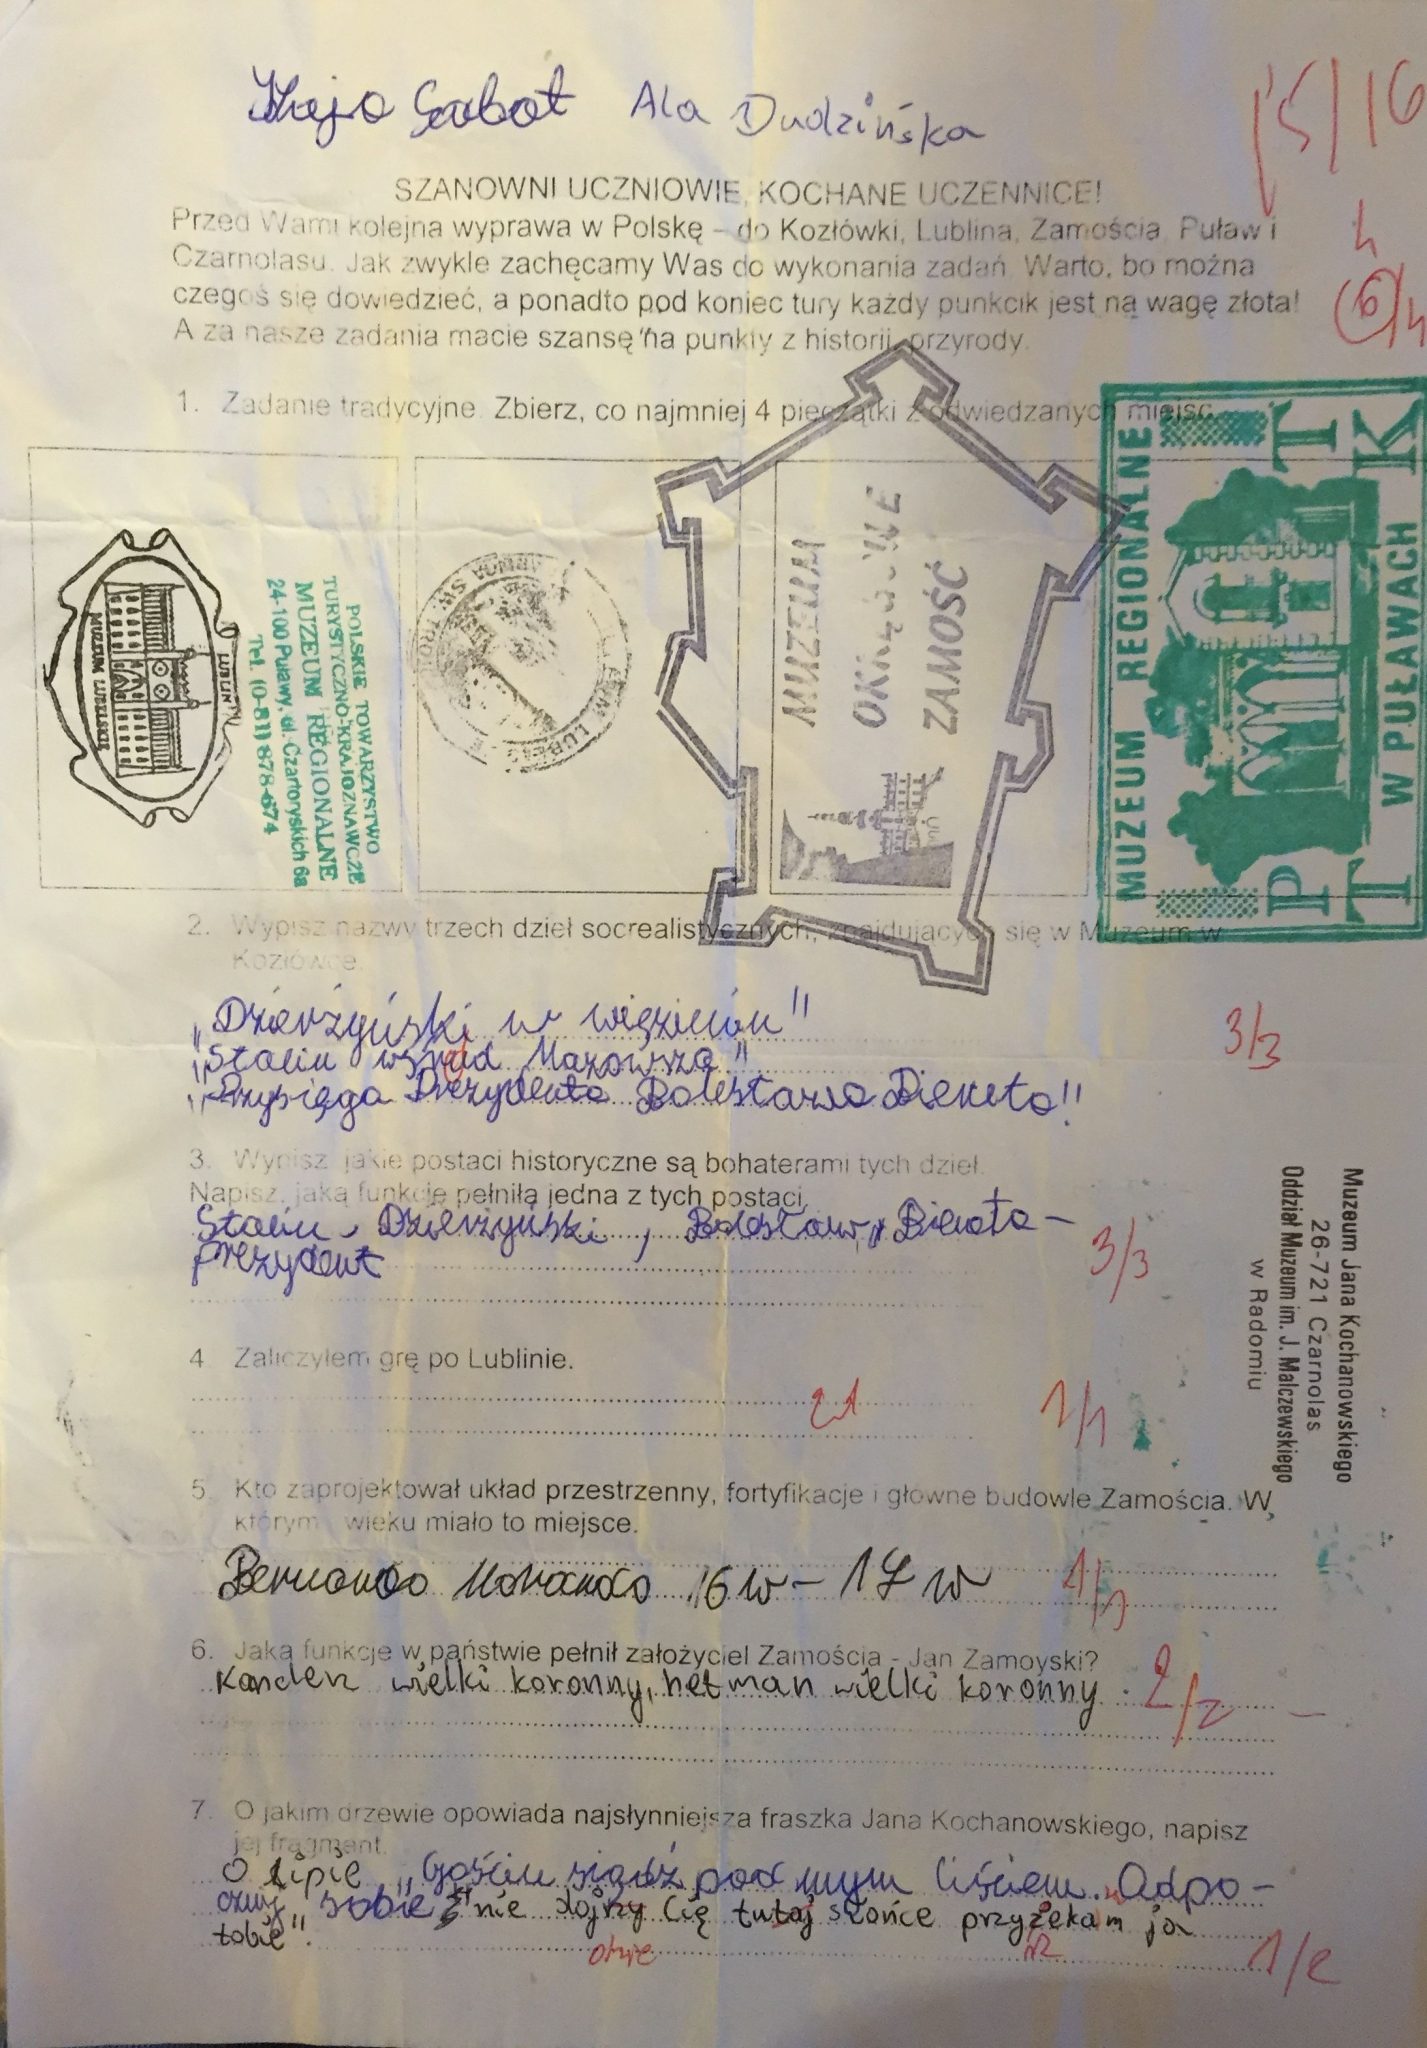 Sabot Ala Dudzińska
15/16
SZANOWNI UCZNIOWIE, KOCHANE UCZENNICE!
Przed Wami kolejna wyprawa w Polskę – do Kozłówki, Lublina, Zamościa, Puław i
Czarnolasu. Jak zwykle zachęcamy Was do wykonania zadań. Warto, bo można
czegoś się dowiedzieć, a ponadto pod koniec tury każdy punkcik jest na wagę złota!
A za nasze zadania macie szansę na punkty z historii, przyrody.
1. Zadanie tradycyjne. Zbierz, co najmniej 4 pieczątki z odwiedzanych miejsc.
LUBLIN
MUZEUM LUBELSKIE
POLSKIE TOWARZYSTWO
TURYSTYCZNO-KRAJOZNAWCZE
MUZEUM REGIONALNE
24-100 Puławy, ul. Czartoryskich 6a
Tel. (0-81) 878-674
MUZEUM
OKRĘGOWE
ZAMOŚĆ
MUZEUM REGIONALNE
PTTK
W PUŁAWACH
2. Wypisz nazwy trzech dzieł socrealistycznych, znajdujących się w Muzeum w
Kozłówce.
„Dzierżyński w więzieniu"
„Stalin wśród Mazowsza"
„Przysięga Prezydenta Bolesława Bieruta"
3/3
3. Wypisz, jakie postaci historyczne są bohaterami tych dzieł.
Napisz, jaką funkcję pełniła jedna z tych postaci.
Stalin, Dzierżyński, Bolesław Bieruta –
prezydent
3/3
Muzeum Jana Kochanowskiego
26-721 Czarnolas
Oddział Muzeum im. J. Malczewskiego
w Radomiu
4. Zaliczyłem grę po Lublinie.
1/1
5. Kto zaprojektował układ przestrzenny, fortyfikacje i główne budowle Zamościa. W
którym wieku miało to miejsce.
Bernando Morando 16 w – 17 w
1/1
6. Jaką funkcje w państwie pełnił założyciel Zamościa - Jan Zamoyski?
Kanderz wielki koronny, hetman wielki koronny.
2/2
7. O jakim drzewie opowiada najsłynniejsza fraszka Jana Kochanowskiego, napisz
jej fragment.
O lipie „Gościu siądź pod mym liściem. Odpo-
cznij sobie nie dojrzy Cię tutaj słońce przyżekam ja
tobie".
1/2